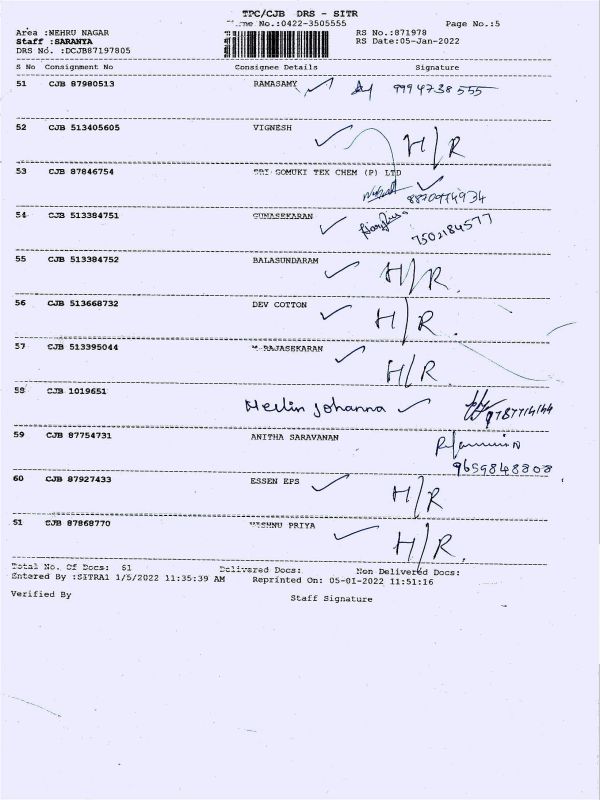 TPC/CJB DRS - SITR
ne No.:0422-3505555 Page No.:5
Area :NEHRU NAGAR RS No.:871978
Staff :SARANYA RS Date:05-Jan-2022
DRS No. :DCJB87197805
S No Consignment No Consignee Details Signature
51 CJB 87980513 RAMASAMY 9994738555
52 CJB 513405605 VIGNESH H/R
53 CJB 87846754 SRI GOMUKI TEX CHEM (P) LTD
54 CJB 513384751 GUNASEKARAN 7502184577
55 CJB 513384752 BALASUNDARAM H/R.
56 CJB 513668732 DEV COTTON H/R.
57 CJB 513395044 M RAJASEKARAN H/R.
58 CJB 1019651 Merlin Johanna
59 CJB 87754731 ANITHA SARAVANAN
9659848808
60 CJB 87927433 ESSEN EPS H/R
61 CJB 87868770 VISHNU PRIYA H/R.
Total No. Of Docs: 61 Delivered Docs: Non Delivered Docs:
Entered By :SITRA1 1/5/2022 11:35:39 AM Reprinted On: 05-01-2022 11:51:16
Verified By Staff Signature